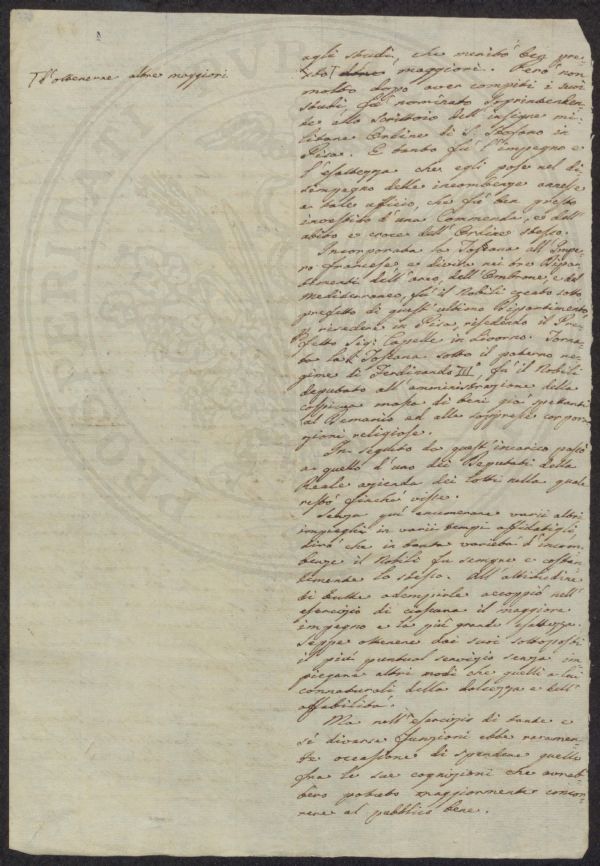 T d'ottenerne altre maggiori
agli studi, che meritò ben pre-
sto T altre maggiori. Però non
molto dopo aver compiti i suoi
studi, fù nominato Soprindenden-
te allo Scrittoio dell'insigne mi-
litare Ordine di S. Stefano in
Pisa. E tanto fù l'impegno e
l'esattezza che egli pose nel di
simpegno delle incombenze annesse
a tale ufficio, che fù ben presto
investito d'una Commenda, e dell'
abito e croce dell'Ordine stesso.
Incorporata la Toscana all'Impe-
ro francese e divisa nei tre Dipar-
timenti dell'Arno, dell'Ombrone, e del
Mediterraneo, fù il Nobili creato sotto
prefetto di quest'ultimo Dipartimento,
risedere in Pisa, risedendo il Pre-
fetto Sig.r Capelle in Livorno. Torna-
ta la Toscana sotto il paterno re-
gime di Ferdinando III.° fù il Nobili
deputato all'amministrazione della
cospicua massa di beni già spettanti
al Demanio ed alle soppresse corpora-
zioni religiose.
In seguito da quest'incarico passò
a quello d'uno dei Deputati della
Reale azienda dei Lotti nella quale
restò finchè visse.
Senza quì enumerare varii altri
impieghi in varii tempi affidatigli,
dirò che in tanta varietà d'incom-
benze il Nobili fu sempre e costan-
temente lo stesso. All'
di tutte adempirle accoppiò nell'
esercizio di ciascuna il maggiore
impegno e la più grande esattezza.
Seppe ottenere dai suoi sottoposti
il più puntual servizio senza im
piegare altri modi che quelli a lui
connaturali della dolcezza e dell'
affabilità.
Ma nell'esercizio di tante e
sì diverse funzioni ebbe raramen-
te occasione di spendere quelle
fra le sue cognizioni che avreb-
bero potuto maggiormente concor-
rere al pubblico bene.